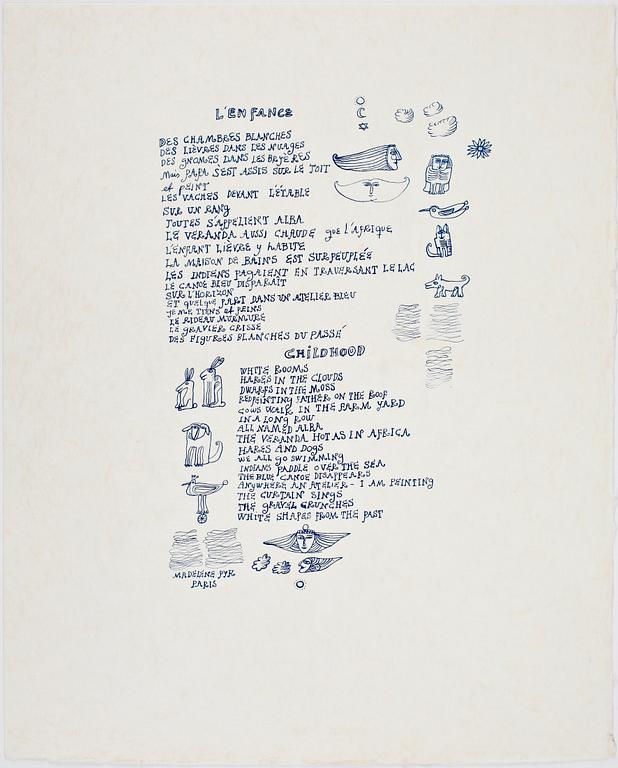 L'ENFANCE
DES CHAMBRES BLANCHES
DES LIÈVRES DANS LES NUAGES
DES GNOMES DANS LES BRYÈRES
MAIS PAPA S'EST ASSIS SUR LE TOIT
et PEINT
LES VACHES DEVANT L'ÉTABLE
SUR UN RANG
TOUTES S'APPELIENT ALBA
LE VERANDA AUSSI CHAUDE que l'AFRIQUE
L'ENFANT LIÈVRE y HABITE
LA MAISON DE BAINS EST SURPEUPLÉE
LES INDIENS PAGAIENT EN TRAVERSANT LE LAC
LE CANOE BLEU DISPARAIT
SUR L'HORIZON
ET QUELQUE PART DANS UN ATELIER BLEU
JE ME TIENS et PEINS
LE RIDEAU MURMURE
LE GRAVIER CRISSE
DES FIGURES BLANCHES DU PASSÉ
CHILDHOOD
WHITE ROOMS
HARES IN THE CLOUDS
DWARFS IN THE MOSS
REDPEINTING FATHER ON THE ROOF
COWS WALK IN THE FARM YARD
IN A LONG ROW
ALL NAMED ALBA
THE VERANDA HOT AS IN AFRICA
HARES AND DOGS
WE ALL GO SWIMMING
INDIANS PADDLE OVER THE SEA
THE BLUE CANOE DISAPPEARS
ANYWHERE AN ATELIER - I AM PEINTING
THE CURTAIN SINGS
THE GRAVEL CRUNCHES
WHITE SHAPES FROM THE PAST
MADELEINE PYK
PARIS